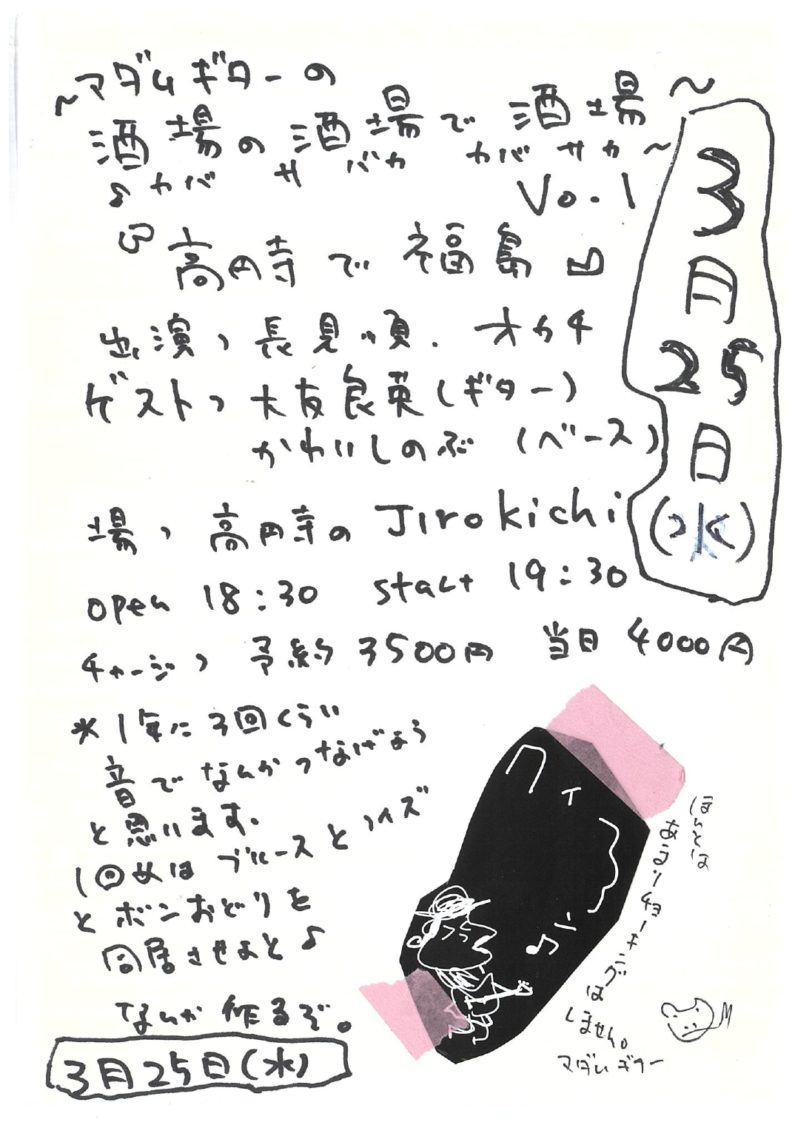 ～マダムギターの
酒場の酒場で酒場～
♪カバ サバカ カバサカ～
Vo.1
『高円寺で福島』
出演、長見順.オカチ
ゲスト、大友良英(ギター)
かわいしのぶ(ベース)
場、高円寺のJIrokichi
open 18:30 start 19:30
チャージ、予約3500円 当日4000円
3
月
25
日
(水)
*1年に3回くらい
音でなんかつなげよう
と思います。
1回めはブルースとノイズ
とボンおどりを
同居させよと♪
なんか作るぞ。
3月25日(水)
クイ
ーン
ほんとは
あまりチョーキングは
しません。
マダムギター
M